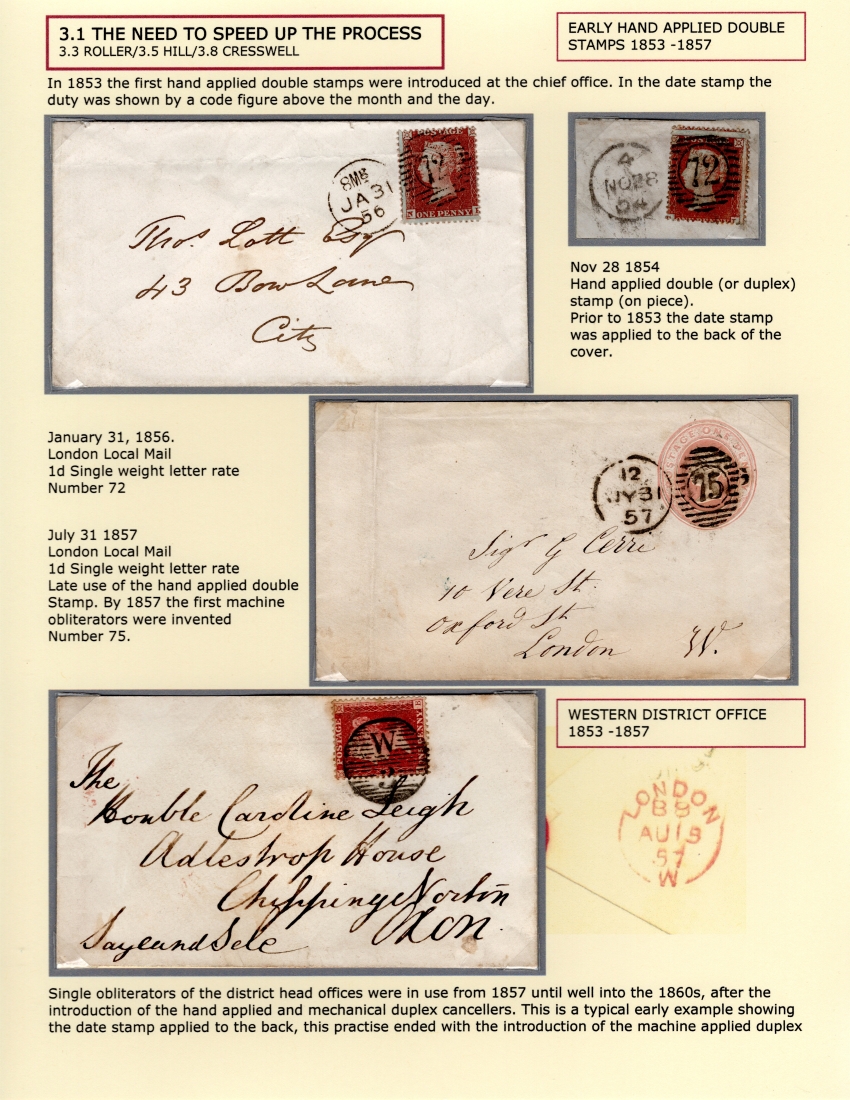 3.1 THE NEED TO SPEED UP THE PROCESS
3.3 ROLLER/3.5 HILL/3.8 CRESSWELL
EARLY HAND APPLIED DOUBLE
STAMPS 1853 -1857
In 1853 the first hand applied double stamps were introduced at the chief office. In the date stamp the
duty was shown by a code figure above the month and the day.
8MB
JA 31
56
72
POSTAGE
ONE PENNY
Thos. Lott Esqr
43 Bow Lane
City
4
NO 28
54
72
Nov 28 1854
Hand applied double (or duplex)
stamp (on piece).
Prior to 1853 the date stamp
was applied to the back of the
cover.
January 31, 1856.
London Local Mail
1d Single weight letter rate
Number 72
July 31 1857
London Local Mail
1d Single weight letter rate
Late use of the hand applied double
Stamp. By 1857 the first machine
obliterators were invented
Number 75.
POSTAGE ONE
12
JY 31
57
75
Sigr G Cerri
10 Vere St.
Oxford St
London W.
POSTAGE
PENNY
W
3
The
Honble Caroline Leigh
Adlestrop House
Chipping Norton
Oxon.
Saye and Sele
WESTERN DISTRICT OFFICE
1853 -1857
LONDON
B8
AU 19
57
W
Single obliterators of the district head offices were in use from 1857 until well into the 1860s, after the
introduction of the hand applied and mechanical duplex cancellers. This is a typical early example showing
the date stamp applied to the back, this practise ended with the introduction of the machine applied duplex